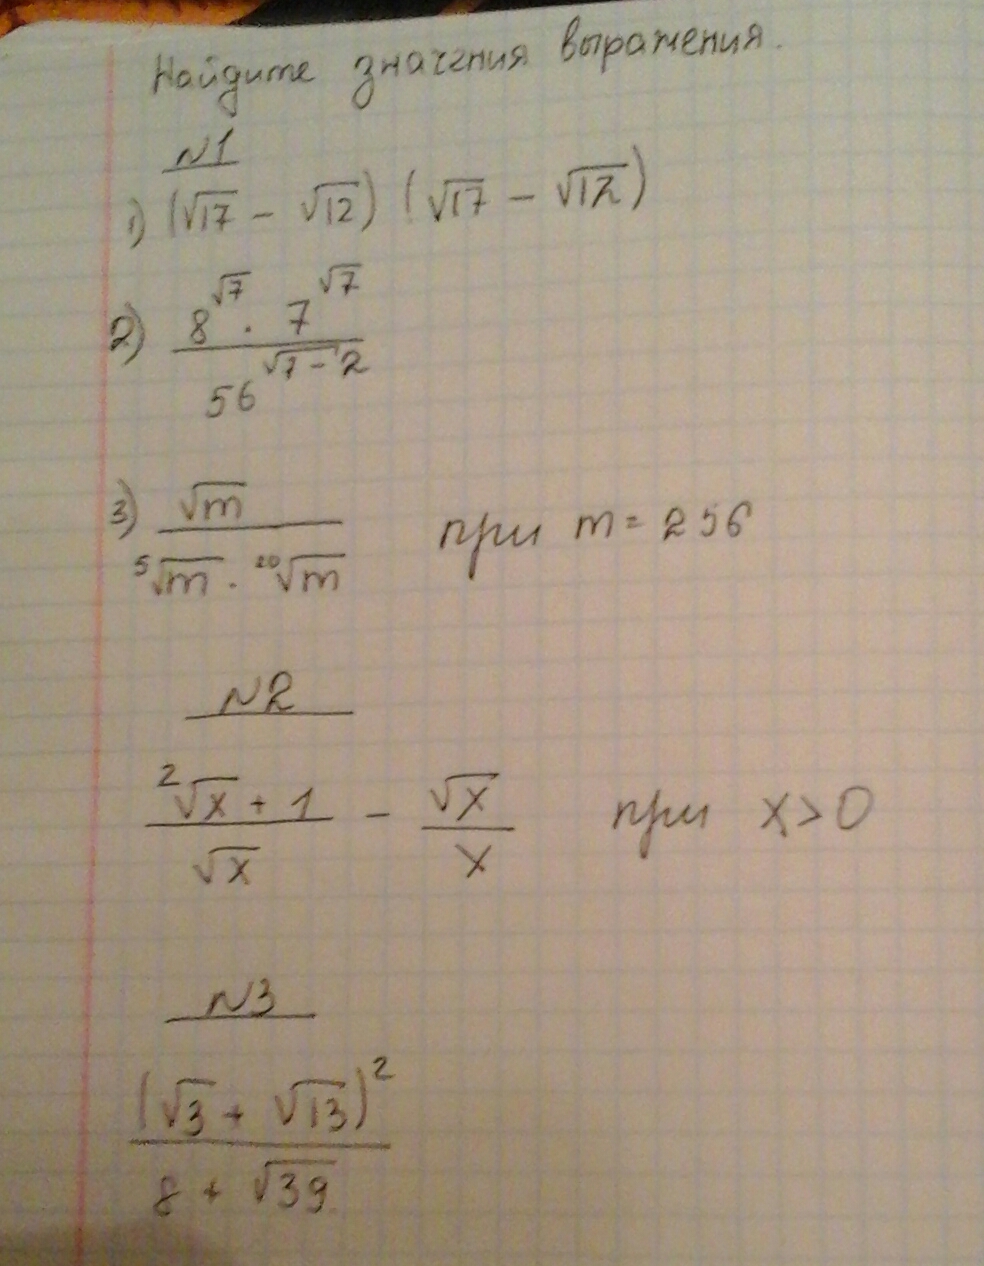 Найдите значения выражения.
N1
1) (√17 - √12) (√17 - √12)
2) 8^√7 · 7^√7
56^√7-2
3) √m
⁵√m · ²⁰√m при m = 256
N2
²√x + 1 - √x при x > 0
√x x
N3
(√3 + √13)²
8 + √39